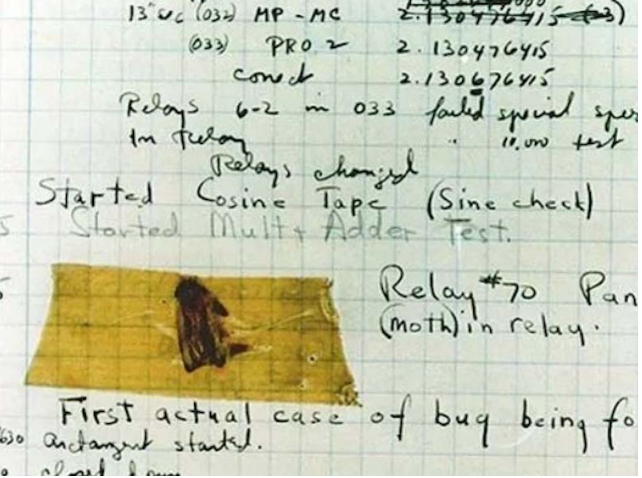 13" UC (032) MP - MC 2.130476415
(033) PRO 2 2.130476415
conect 2.130676415
Relays 6-2 in 033 failed special spe
In Relay " 10,000 test
Relays changed
Started Cosine Tape (Sine check)
5 Started Mult + Adder Test.
5 Relay #70 Pan
(moth) in relay.
First actual case of bug being fo
1630 arctangent started.
closed down